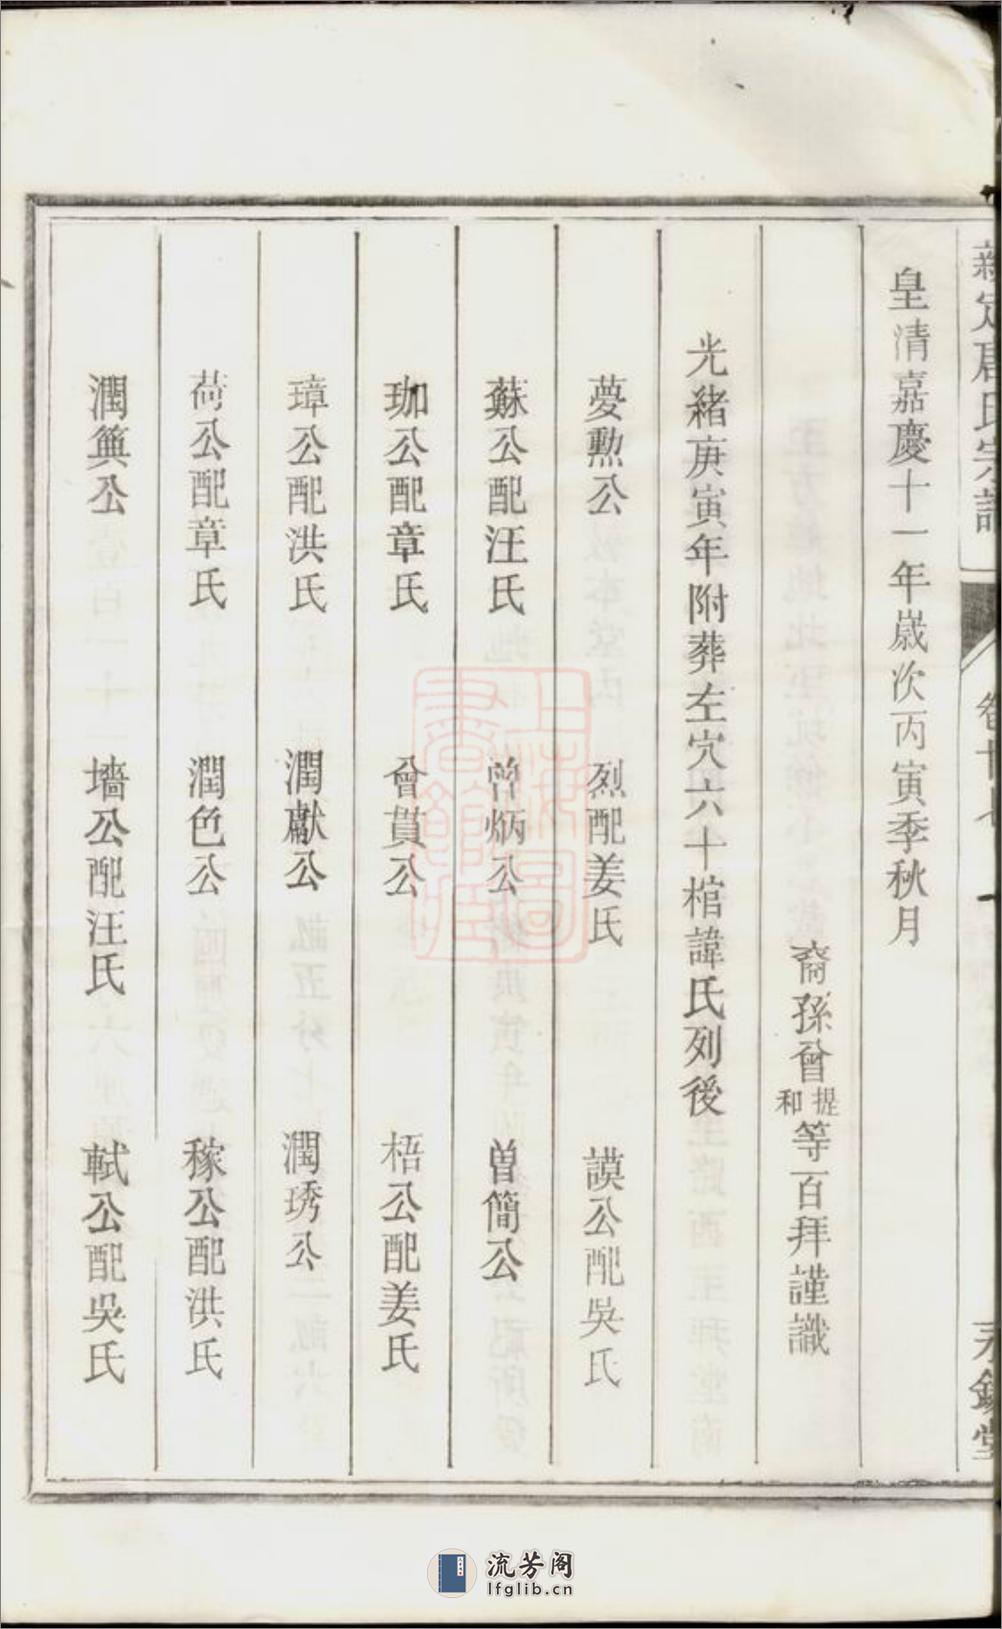 皇清嘉慶十一年歲次丙寅季秋月
裔孫曾提和等百拜謹識
光緒庚寅年附葬左穴六十棺諱氏列後
夢勲公　烈配姜氏　謨公配吳氏
蘇公配汪氏　曾炳公　曾簡公
珈公配章氏　曾蕒公　梧公配姜氏
璋公配洪氏　潤獻公　潤琇公
荷公配章氏　潤色公　稼公配洪氏
潤簨公　墻公配汪氏　軾公配吳氏
上海圖書館藏
流芳阁
lfglib.cn